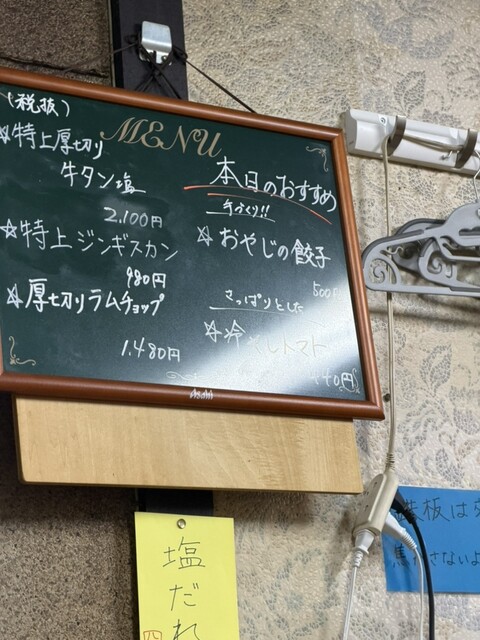 (税抜)
MENU
☆特上厚切り
牛タン塩
2.100円
☆特上ジンギスカン
980円
☆厚切りラムチョップ
1.480円
本日のおすすめ
手づくり!!
☆おやじの餃子
500
さっぱりとした
☆冷やしトマト
40円
Asahi
塩だれ
鉄板は
焦がさないよ